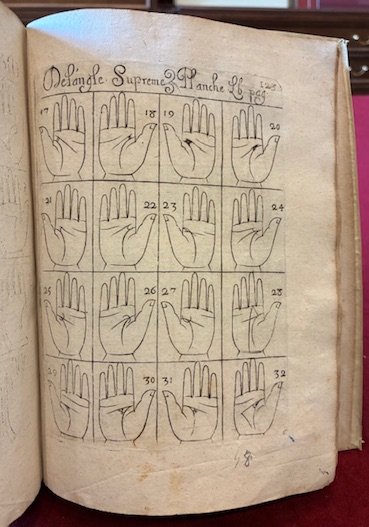 De l'angle Supreme Planche
17 18 19 20
21 22 23 24
25 26 27 28
29 30 31 32